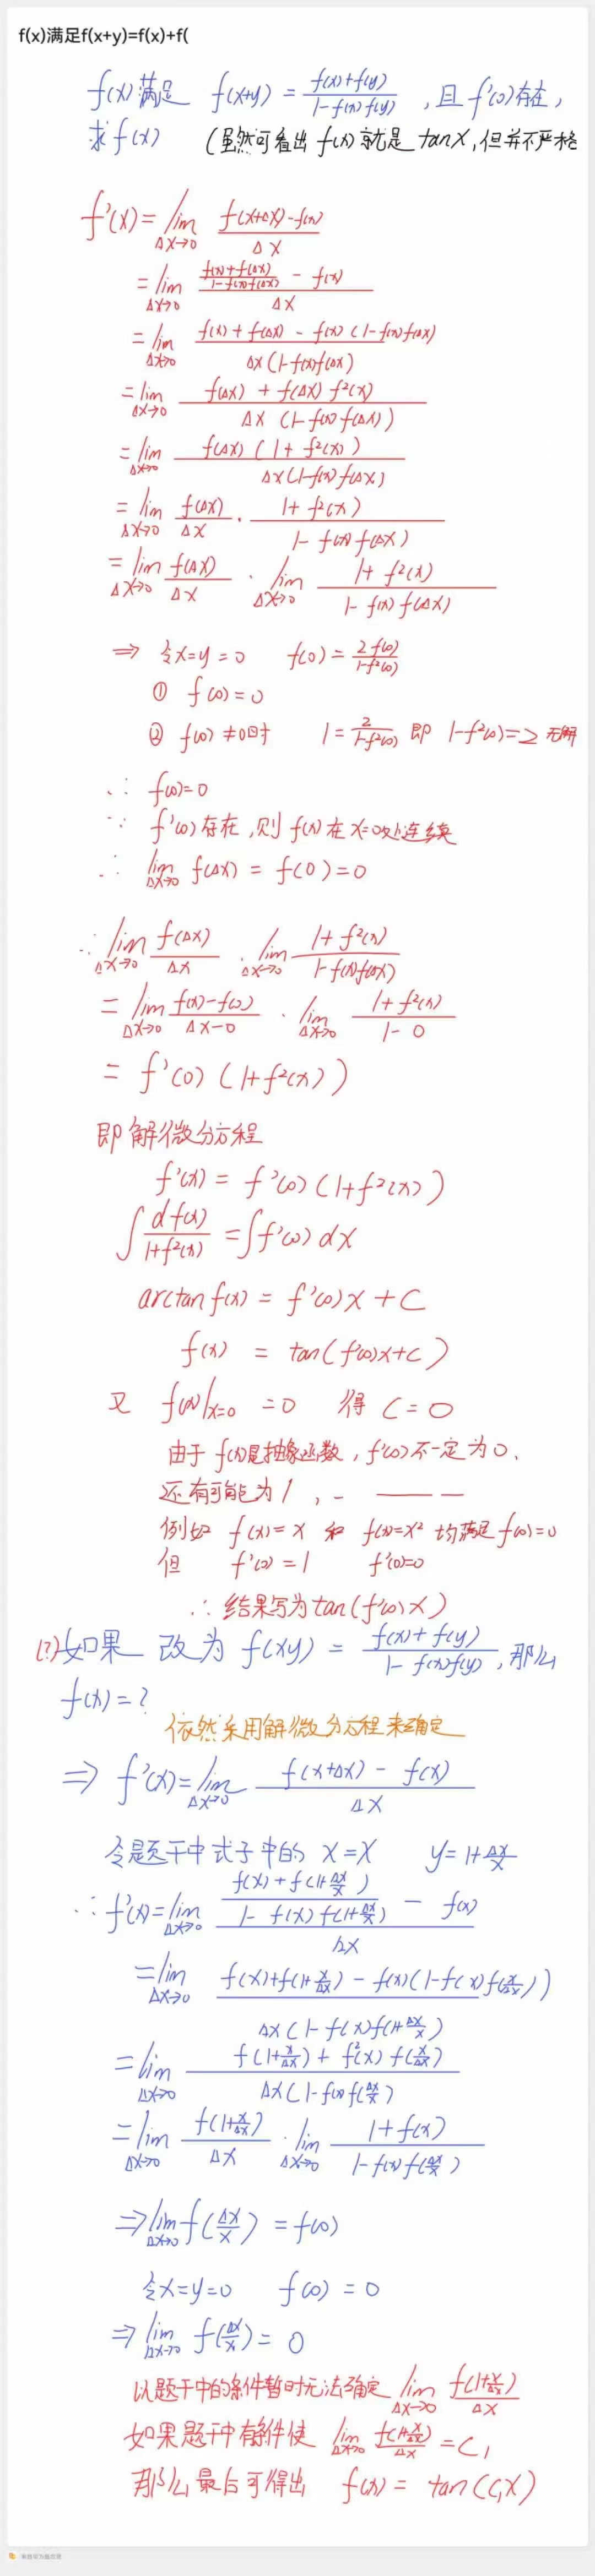 f(x)满足f(x+y)=f(x)+f(
f(x)满足 f(x+y) = \frac{f(x)+f(y)}{1-f(x)f(y)} ,且f'(0)存在,
求f(x) (虽然可看出f(x)就是tanx,但并不严格
f'(x)=\lim_{Δx→0} \frac{f(x+Δx)-f(x)}{Δx}
=\lim_{Δx→0} \frac{\frac{f(x)+f(Δx)}{1-f(x)f(Δx)} - f(x)}{Δx}
=\lim_{Δx→0} \frac{f(x)+f(Δx)-f(x)(1-f(x)f(Δx)}{Δx(1-f(x)f(Δx)}
=\lim_{Δx→0} \frac{f(Δx)+f(Δx)f²(x)}{Δx(1-f(x)f(Δx))}
=\lim_{Δx→0} \frac{f(Δx)(1+f²(x))}{Δx(1-f(x)f(Δx)}
=\lim_{Δx→0} \frac{f(Δx)}{Δx} · \frac{1+f²(x)}{1-f(x)f(Δx)}
=\lim_{Δx→0} \frac{f(Δx)}{Δx} · \lim_{Δx→0} \frac{1+f²(x)}{1-f(x)f(Δx)}
⇒ 令x=y=0 f(0)=\frac{2f(0)}{1-f²(0)}
① f(0)=0
② f(0)≠0时 1=\frac{2}{1-f²(0)} 即 1-f²(0)=2 无解
∴ f(0)=0
∵ f'(0)存在,则f(x)在x=0处连续
∴ \lim_{Δx→0} f(Δx) = f(0)=0
∴ \lim_{Δx→0} \frac{f(Δx)}{Δx} · \lim_{Δx→0} \frac{1+f²(x)}{1-f(x)f(Δx)}
=\lim_{Δx→0} \frac{f(x)-f(0)}{Δx-0} · \lim_{Δx→0} \frac{1+f²(x)}{1-0}
= f'(0)(1+f²(x))
即解微分方程
f'(x) = f'(0)(1+f²(x))
∫\frac{df(x)}{1+f²(x)} = ∫f'(0)dx
arctanf(x) = f'(0)x+C
f(x) = tan(f'(0)x+C)
又 f(x)|_{x=0} =0 得 C=0
由于f(x)是抽象函数,f'(0)不一定为0.
还有可能为1, - ——— —
例如 f(x)=x 和 f(x)=x² 均满足f(0)=0
但 f'(0)=1 f'(0)=0
∴结果写为tan(f'(0)x)
(?)如果 改为 f(xy) = \frac{f(x)+f(y)}{1-f(x)f(y)},那么
f(x)=?
依然采用解微分方程来确定
⇒ f'(x)=\lim_{Δx→0} \frac{f(x+Δx)-f(x)}{Δx}
令题干中式子中的 x=x y=1+\frac{Δx}{x}
∴ f'(x)=\lim_{Δx→0} \frac{\frac{f(x)+f(1+\frac{Δx}{x})}{1-f(x)f(1+\frac{Δx}{x})} - f(x)}{Δx}
=\lim_{Δx→0} \frac{f(x)+f(1+\frac{x}{Δx})-f(x)(1-f(x)f(\frac{x}{Δx}))}{Δx(1-f(x)f(1+\frac{Δx}{x})}
=\lim_{Δx→0} \frac{f(1+\frac{x}{Δx})+f²(x)f(\frac{x}{Δx})}{Δx(1-f(x)f(\frac{Δx}{x})}
=\lim_{Δx→0} \frac{f(1+\frac{x}{Δx})}{Δx} · \lim_{Δx→0} \frac{1+f(x)}{1-f(x)f(\frac{Δx}{x})}
⇒ \lim_{Δx→0} f(\frac{Δx}{x}) = f(0)
令x=y=0 f(0)=0
⇒ \lim_{Δx→0} f(\frac{Δx}{x}) = 0
以题干中的条件暂时无法确定 \lim_{Δx→0} \frac{f(1+\frac{x}{Δx})}{Δx}
如果题干中有条件使 \lim_{Δx→0} \frac{f(1+\frac{x}{Δx})}{Δx} = C₁
那么最后可得出 f(x) = tan(C₁x)